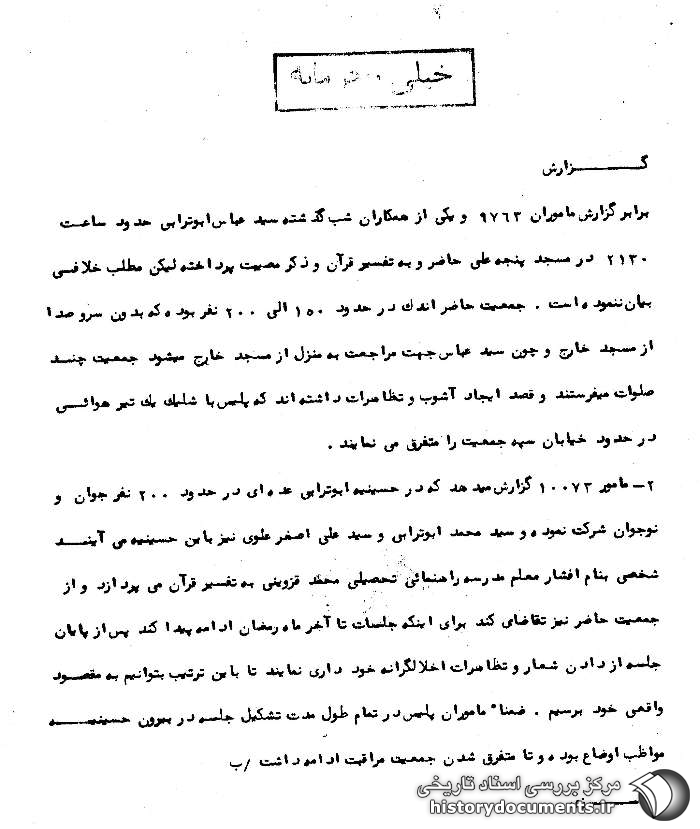 خیلی
گـــــــزارش
برابر گزارش ماموران ۹۷۶۳ و یکی از همکاران شب گذشته سید عباس ابوترابی حدود ساعت
۲۱۳۰ در مسجد پنجه علی حاضر و به تفسیر قرآن و ذکر مصیبت پرداخته لیکن مطلب خلافی
بیان ننموده است . جمعیت حاضر اندك در حدود ۱۵۰ الی ۲۰۰ نفر بوده که بدون سرو صدا
از مسجد خارج و چون سید عباس جهت مراجعت به منزل از مسجد خارج میشود جمعیت چند
صلوات میفرستند و قصد ایجاد آشوب و تظاهرات داشته اند که پلیس با شلیك یك تیر هوائی
در حدود خیابان سپه جمعیت را متفرق می نمایند .
۲- مامور ۱۰۰۷۳ گزارش میدهد که در حسینیه ابوترابی عده ای در حدود ۲۰۰ نفر جوان و
نوجوان شرکت نموده و سید محمد ابوترابی و سید علی اصغر علوی نیز باین حسینیه می آیند
شخصی بنام افشار معلم مدرسه راهنمائی تحصیلی محمد قزوینی به تفسیر قرآن می پردازد و از
جمعیت حاضر نیز تقاضای کند برای اینکه جلسات تا آخر ماه رمضان ادامه پیدا کند پس از پایان
جلسه از دادن شعار و تظاهرات اخلالگرانه خود داری نمایند تا باین ترتیب بتوانیم به مقصود
واقعی خود برسیم . ضمنا" ماموران پلیس در تمام طول مدت تشکیل جلسه در بیرون حسینیه
مواظب اوضاع بوده و تا متفرق شدن جمعیت مراقبت ادامه داشت /ب
مرکز بررسی اسناد تاریخی
historydocuments.ir